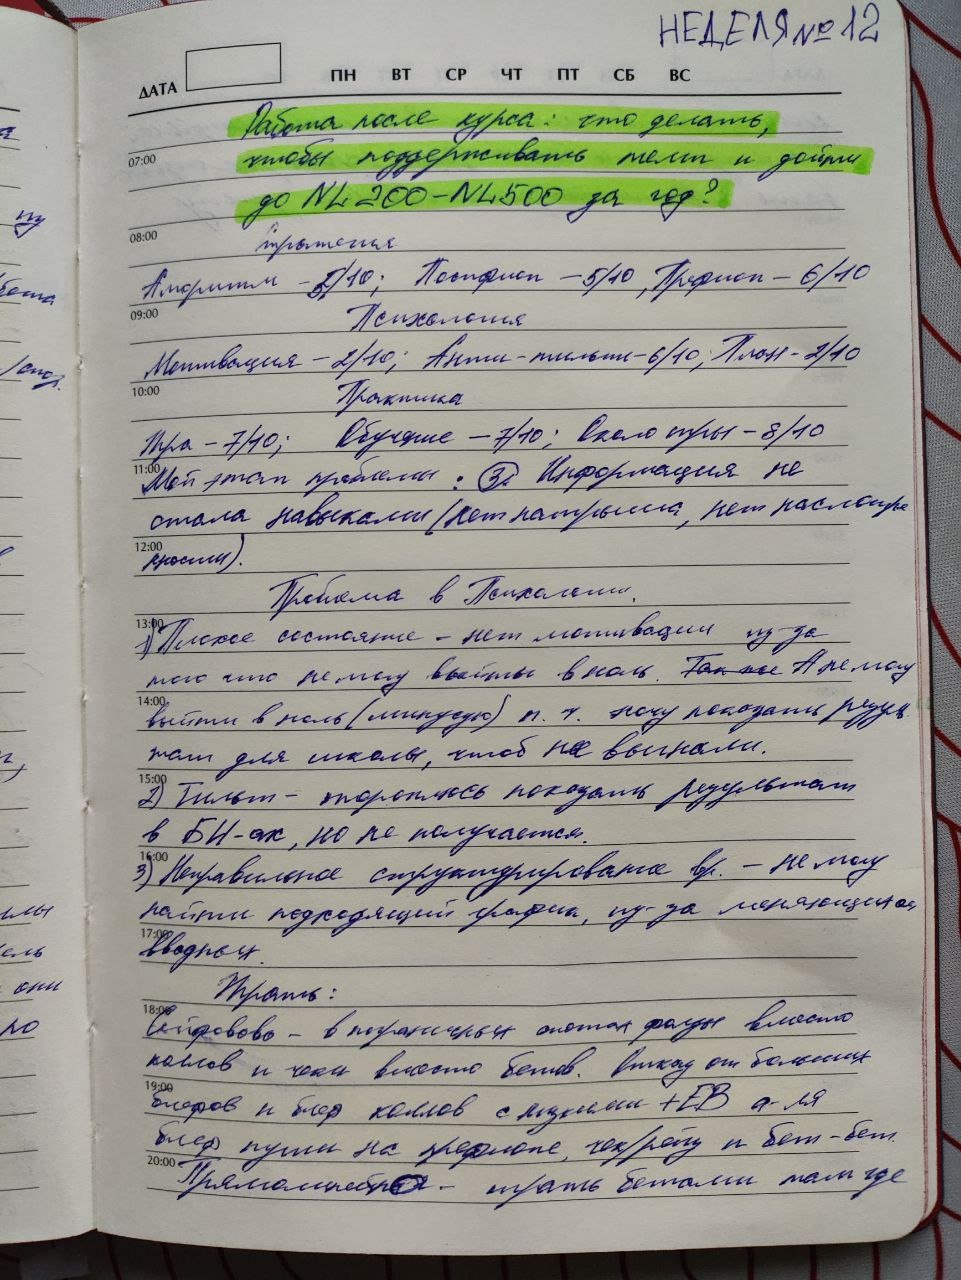 НЕДЕЛЯ № 12
ДАТА ПН ВТ СР ЧТ ПТ СБ ВС
Работа после курса: что делать,
07:00
чтобы поддерживать темп и дойти
до NL200-NL500 за год?
08:00
Стратегия
Алгоритм - 5/10; Постфлоп - 5/10, Префлоп - 6/10
09:00
Психология
Мотивация - 2/10; Анти-тильт - 6/10; План - 2/10
10:00
Практика
Игра - 7/10; Обучение - 7/10; Около игры - 8/10
11:00
Мой этап проблемы: 3. Информация не
стала навыками (нет натрыша, нет наслоенр
12:00
ности).
Проблема в Психологии.
13:00
1) Плохое состояние - нет мотивации из-за
того что не могу выйти в ноль. А не могу
14:00
выйти в ноль (минусую) п. ч. хочу показать резул
тат для школы, чтоб не выгнали.
15:00
2) Тильт - тороплюсь показать результат
в БИ-ах, но не получается.
16:00
3) Неправильное структурирование вр. - не могу
найти подходящий график, из-за меняющихся
17:00
вводных.
Играть:
18:00
Сейфово - в пограничных спотах фолды вместо
коллов и чеки вместо бетов. Отказ от больших
19:00
блефов и блеф коллов с низкими +EВ а-ля
блеф пуши на префлопе, чек/рейз и бет-бет.
20:00
Прямолинейно - играть бетами там где
ну
/спот.
они